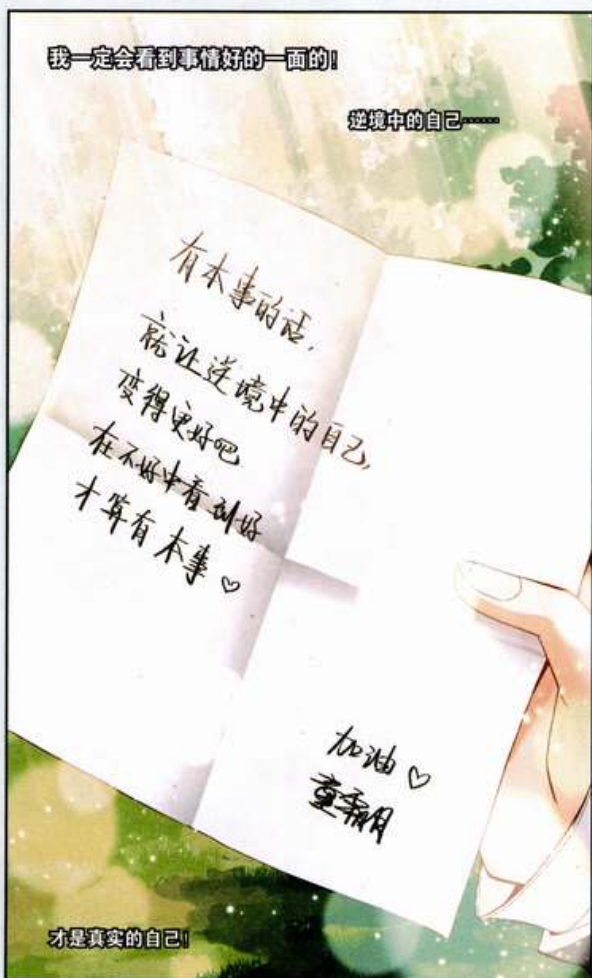 我一定会看到事情好的一面的！
逆境中的自己……
有本事的话，
就让逆境中的自己，
变得更好吧
在不好中看到好
才算有本事♡
加油♡
童霜月
才是真实的自己！